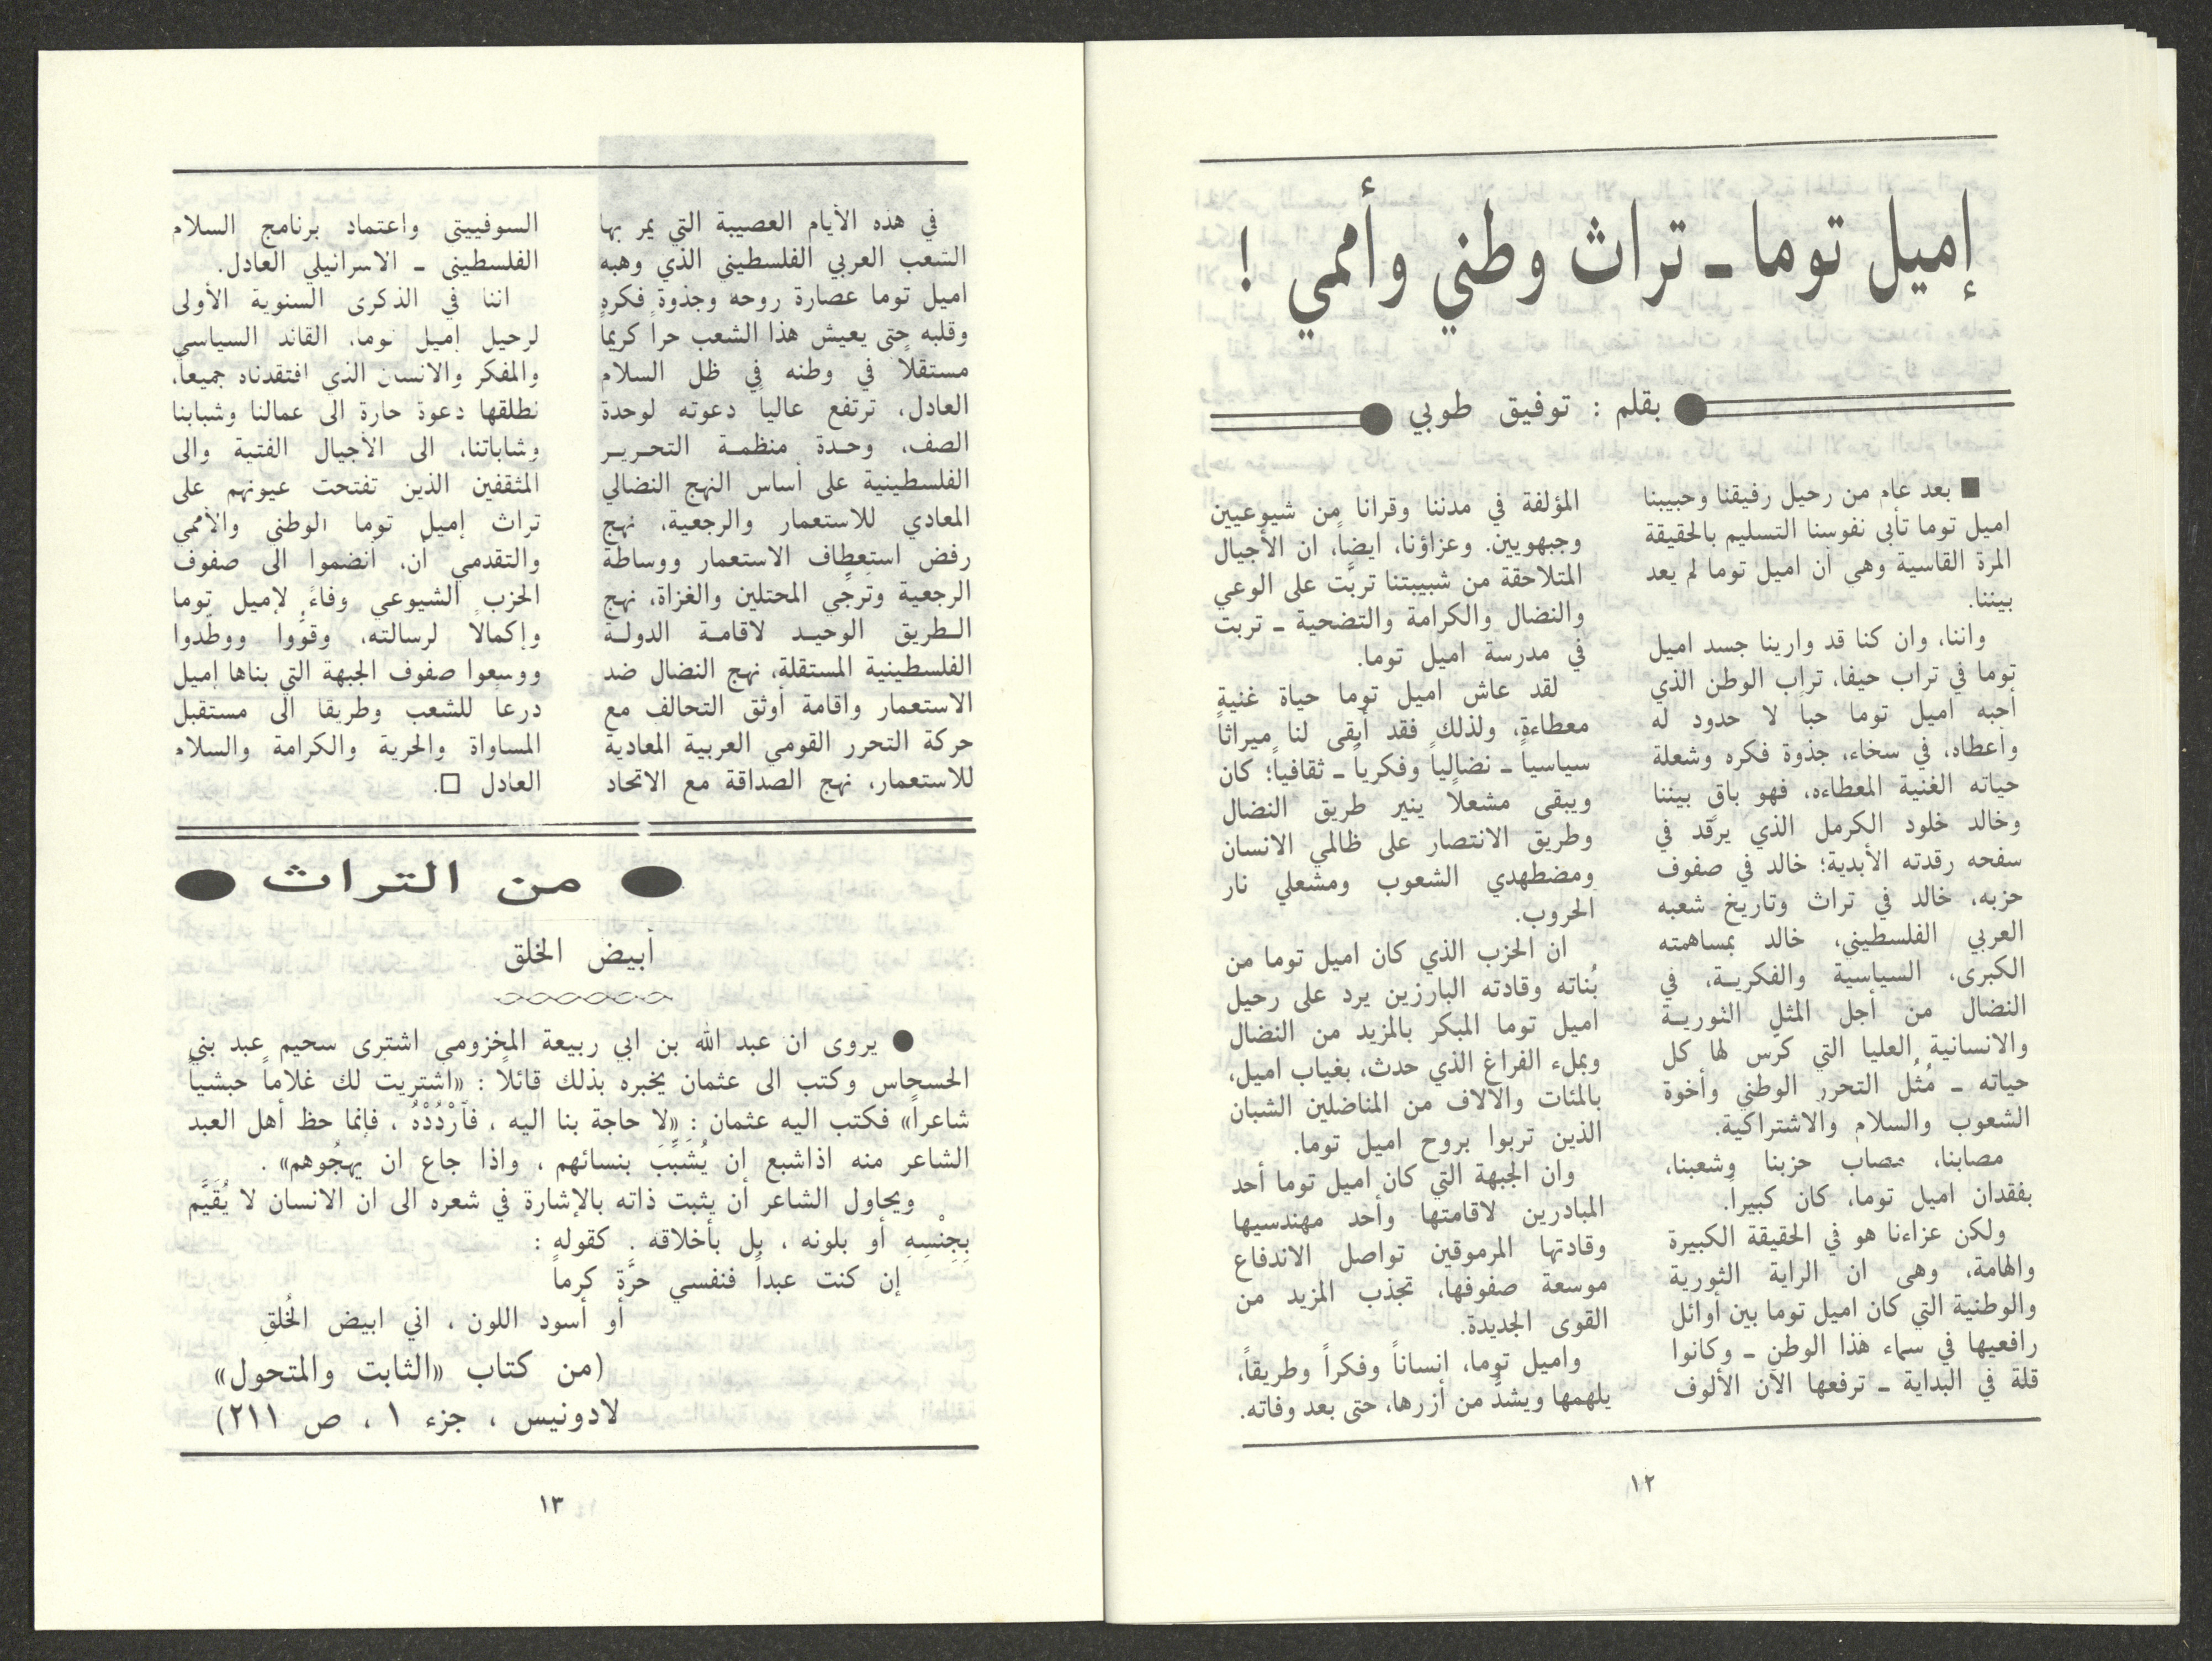 إميل توما ـ تراث وطني وأممي !
بقلم : توفيق طوبي
■ بعد عام من رحيل رفيقنا وحبيبنا
اميل توما تأبى نفوسنا التسليم بالحقيقة
المرة القاسية وهي أن اميل توما لم يعد
بيننا.
واننا، وان كنا قد وارينا جسد اميل
توما في تراب حيفا، تراب الوطن الذي
أحبه اميل توما حباً لا حدود له
واعطاه، في سخاء، جذوة فكره وشعلة
حياته الغنية المعطاءه، فهو باقٍ بيننا
وخالد خلود الكرمل الذي يرقد في
سفحه رقدته الأبدية؛ خالد في صفوف
حزبه، خالد في تراث وتاريخ شعبه
العربي الفلسطيني، خالد بمساهمته
الكبرى، السياسية والفكرية، في
النضال من أجل المثل الثورية
والانسانية العليا التي كرس لها كل
حياته ـ مُثُل التحرر الوطني وأخوة
الشعوب والسلام والاشتراكية.
مصابنا، مصاب حزبنا وشعبنا،
بفقدان اميل توما، كان كبيراً.
ولكن عزاءنا هو في الحقيقة الكبيرة
والهامة، وهى ان الراية الثورية
والوطنية التي كان اميل توما بين أوائل
رافعيها في سماء هذا الوطن ـ وكانوا
قلة في البداية ـ ترفعها الآن الألوف
المؤلفة في مدننا وقرانا من شيوعيين
وجبهويين. وعزاؤنا، ايضاً، ان الأجيال
المتلاحقة من شبيبتنا تربَّت على الوعي
والنضال والكرامة والتضحية ـ تربت
في مدرسة اميل توما.
لقد عاش اميل توما حياة غنية
معطاءة، ولذلك فقد أبقى لنا ميراثاً
سياسياً ـ نضالياً وفكرياً ـ ثقافياً؛ كان
ويبقى مشعلاً ينير طريق النضال
وطريق الانتصار على ظالمي الانسان
ومضطهدي الشعوب ومشعلي نار
الحروب.
ان الحزب الذي كان اميل توما من
بُناته وقادته البارزين يرد على رحيل
اميل توما المبكر بالمزيد من النضال
وبملء الفراغ الذي حدث، بغياب اميل،
بالمئات والآلاف من المناضلين الشبان
الذين تربوا بروح اميل توما.
وان الجبهة التي كان اميل توما أحد
المبادرين لاقامتها وأحد مهندسيها
وقادتها المرموقين تواصل الاندفاع
موسعة صفوفها، تجذب المزيد من
القوى الجديدة.
واميل توما، انساناً وفكراً وطريقاً،
يلهمها ويشدُّ من أزرها، حتى بعد وفاته.
١٢
في هذه الأيام العصيبة التي يمر بها
الشعب العربي الفلسطيني الذي وهبه
اميل توما عصارة روحه وجذوة فكره
وقلبه حتى يعيش هذا الشعب حراً كريماً
مستقلاً في وطنه في ظل السلام
العادل، ترتفع عالياً دعوته لوحدة
الصف، وحدة منظمة التحرير
الفلسطينية على أساس النهج النضالي
المعادي للاستعمار والرجعية، نهج
رفض استعطاف الاستعمار ووساطة
الرجعية وترجّي المحتلين والغزاة، نهج
الطريق الوحيد لاقامة الدولة
الفلسطينية المستقلة، نهج النضال ضد
الاستعمار واقامة أوثق التحالف مع
حركة التحرر القومي العربية المعادية
للاستعمار، نهج الصداقة مع الاتحاد
السوفييتي واعتماد برنامج السلام
الفلسطيني ـ الاسرائيلي العادل.
اننا في الذكرى السنوية الأولى
لرحيل إميل توما، القائد السياسي
والمفكر والانسان الذي افتقدناه جميعاً،
نطلقها دعوة حارة الى عمالنا وشبابنا
وشاباتنا، الى الأجيال الفتية والى
المثقفين الذين تفتحت عيونهم على
تراث إميل توما الوطني والأممي
والتقدمي أن، أنضموا الى صفوف
الحزب الشيوعي وفاءً لإميل توما
وإكمالاً لرسالته، وقوُّوا ووطّدوا
ووسعوا صفوف الجبهة التي بناها إميل
درعاً للشعب وطريقاً الى مستقبل
المساواة والحرية والكرامة والسلام
العادل □.
● من التراث ●
أبيض الخلق
● يروى ان عبد الله بن ابي ربيعة المخزومي اشترى سحيم عبد بني
الحسحاس وكتب الى عثمان يخبره بذلك قائلاً : «اشتريت لك غلاماً حبشياً
شاعراً» فكتب اليه عثمان : «لا حاجة بنا اليه ، فآرْدُدْهُ ، فإنما حظ أهل العبد
الشاعر منه اذاشبع ان يُشَبِّبَ بنسائهم ، واذا جاع ان يهجُوهم» .
ويحاول الشاعر أن يثبت ذاته بالإشارة في شعره الى ان الانسان لا يُقَيَّم
بِجِنْسِهِ أو بلونه ، بل بأخلاقه . كقوله :
إن كنت عبداً فنفسي حرَّة كرماً
أو أسود اللون ، اني ابيض الخُلق
(من كتاب «الثابت والمتحول»
لادونيس ، جزء ١ ، ص ٢١١)
١٣